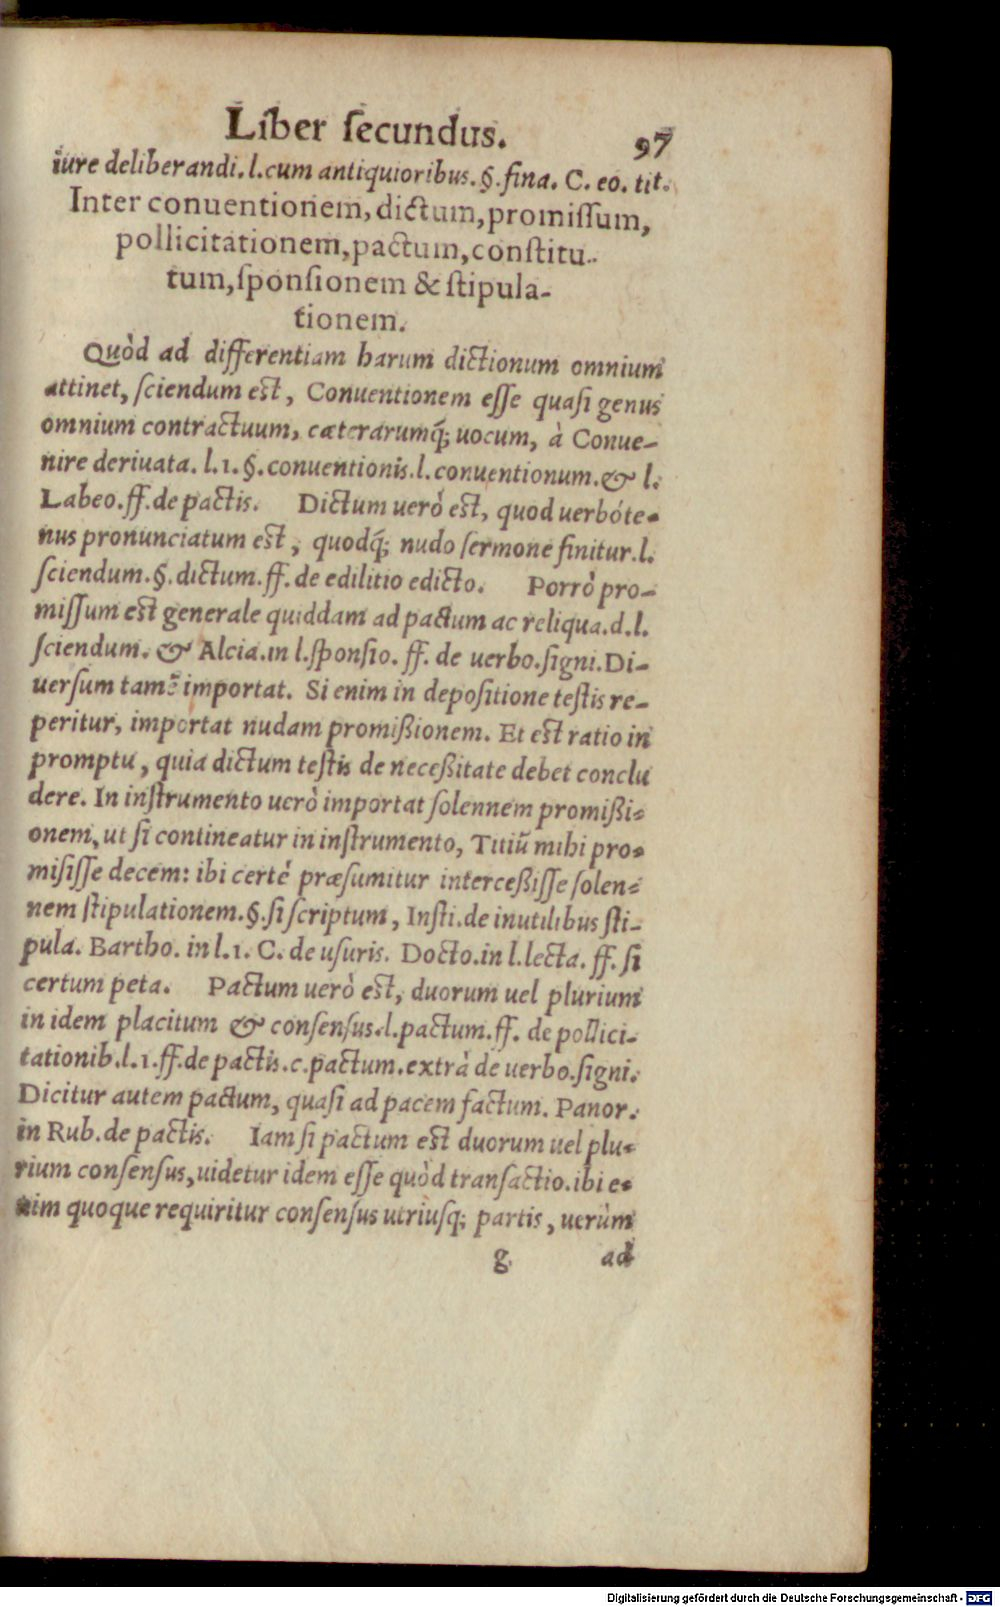 Liber ſecundus. 97
iure deliberandi. l. cum antiquioribus. §. fina. C. eo. tit.
Inter conuentionem, dictum, promiſſum,
pollicitationem, pactum, conſtitu-
tum, ſponſionem & ſtipula-
tionem.
Quòd ad differentiam harum dictionum omnium
attinet, ſciendum eſt, Conuentionem eſſe quaſi genus
omnium contractuum, cæterarumq́; uocum, à Conue-
nire deriuata. l. 1. §. conuentionis. l. conuentionum. & l.
Labeo. ff. de pactis. Dictum uerò eſt, quod uerbóte-
nus pronunciatum eſt, quodq́; nudo ſermone finitur. l.
ſciendum. §. dictum. ff. de edilitio edicto. Porrò pro-
miſſum eſt generale quiddam ad pactum ac reliqua. d. l.
ſciendum. & Alcia. in l. ſponſio. ff. de uerbo. ſigni. Di-
uerſum tamē importat. Si enim in depoſitione teſtis re-
peritur, importat nudam promißionem. Et eſt ratio in
promptu, quia dictum teſtis de neceßitate debet conclu
dere. In inſtrumento uerò importat ſolennem promißi-
onem, ut ſi contineatur in inſtrumento, Titiū mihi pro-
miſiſſe decem: ibi certè præſumitur interceßiſſe ſolen-
nem ſtipulationem. §. ſi ſcriptum, Inſti. de inutilibus ſti-
pula. Bartho. in l. 1. C. de uſuris. Docto. in l. lecta. ff. ſi
certum peta. Pactum uerò eſt, duorum uel plurium
in idem placitum & conſenſus. l. pactum. ff. de pollici-
tationib. l. 1. ff. de pactis. c. pactum. extrà de uerbo. ſigni.
Dicitur autem pactum, quaſi ad pacem factum. Panor.
in Rub. de pactis. Iam ſi pactum eſt duorum uel plu-
rium conſenſus, uidetur idem eſſe quòd transactio. ibi e-
nim quoque requiritur conſenſus utriuſq; partis, uerùm
g ad
Digitalisierung gefördert durch die Deutsche Forschungsgemeinschaft - DFG